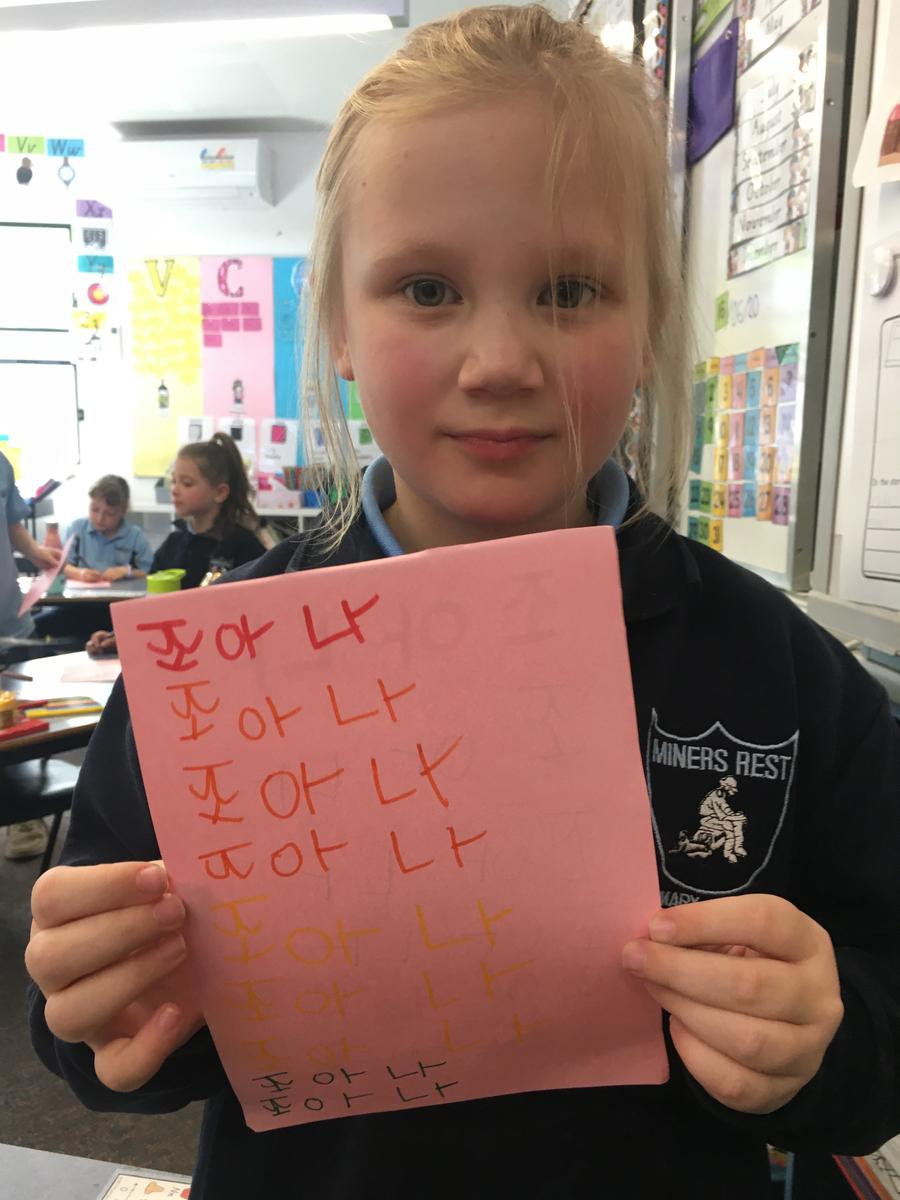 Vv Ww
Xx
Yy
V C
May
July
August
September
October
November
조 아 나
조 아 나
조 아 나
조 아 나
조 아 나
조 아 나
조 아 나
조 아 나
조 아 나
MINERS REST